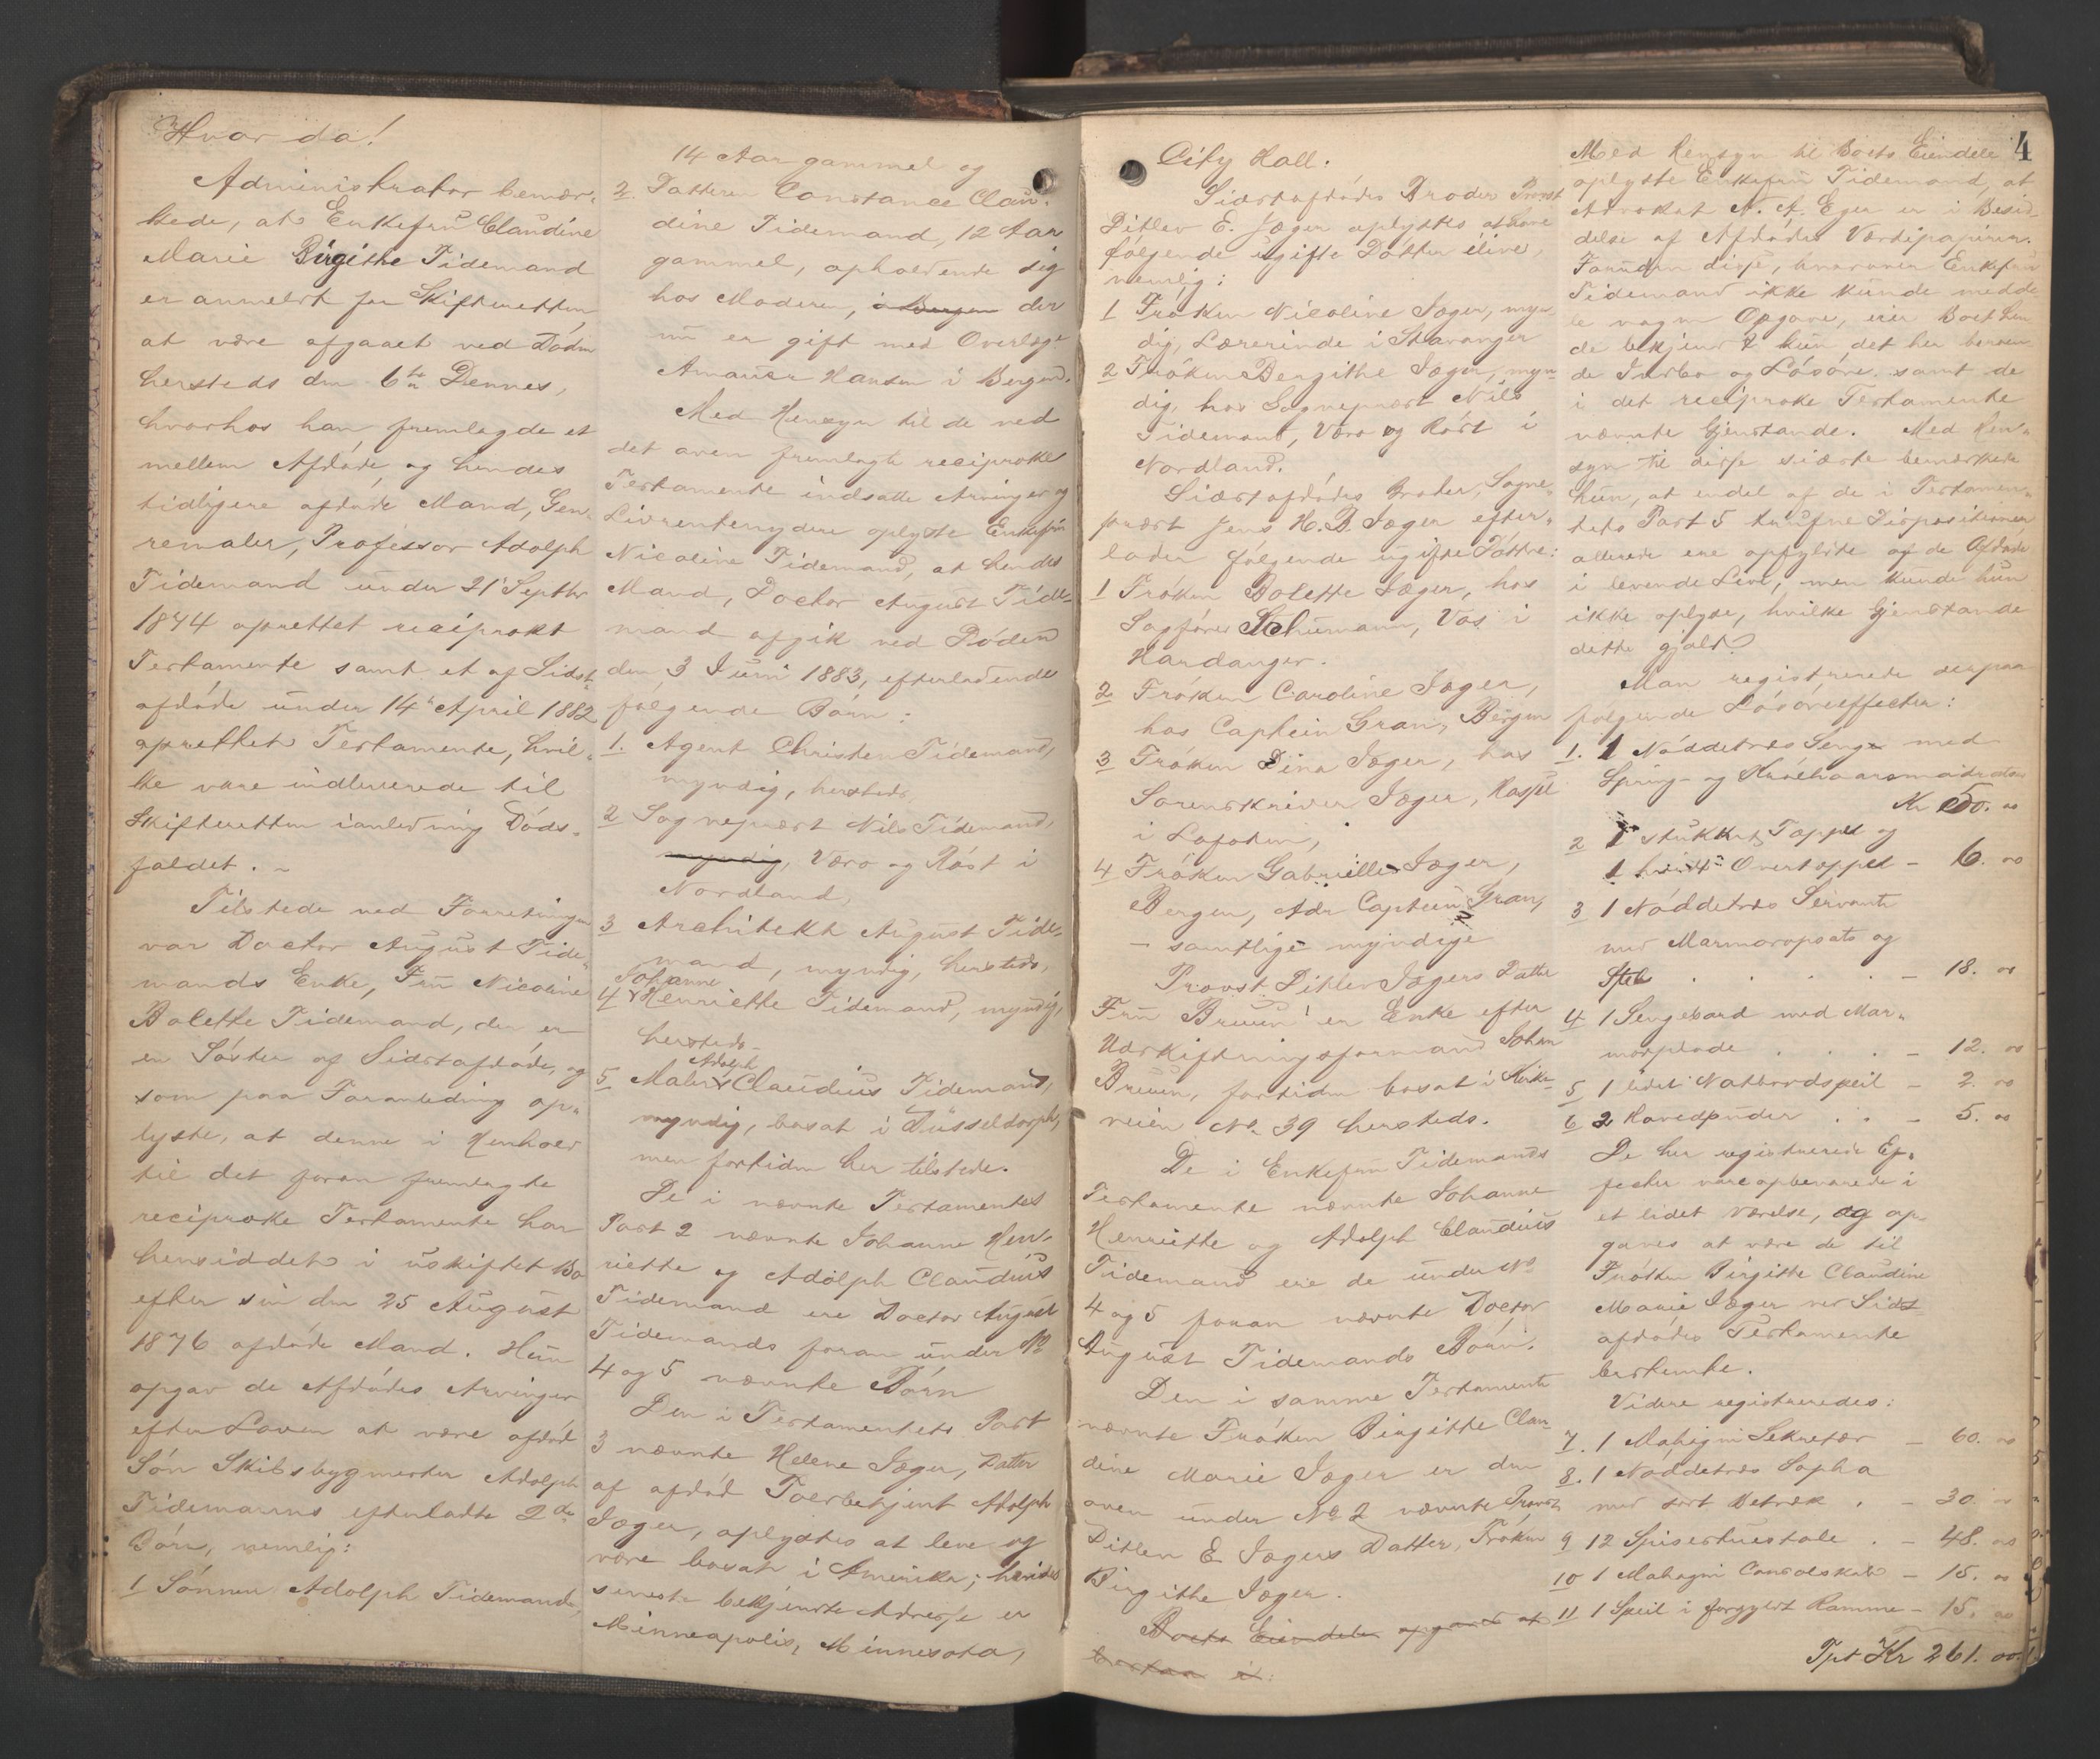 Hvor da!
Administrator bemær-
kede, at Enkefru Claudine
Marie Birgithe Tidemand
er anmeldt for Skifteretten
at være afgaaet ved Døden
hersteds den 6te Dennes,
hvorhos han fremlagde et
mellem Afdøde og hendes
tidligere afdøde Mand, Gen-
remaler, Professor Adolph
Tidemand under 21' Septbr
1844 oprettet reciprokt
Testamente samt et af Sidst-
afdøde under 14' April 1882
oprettet Testamente, hvil-
ke vare indleverede til
Skifteretten i anledning Døds-
faldet. -
Tilstede ved Forretningen
var Doctor August Tide-
mands Enke, Fru Nicoline
Bolette Tidemand, der er
en Søster af Sidstafdøde, og
som paa Foranledning op-
lyste, at denne i Henhold
til det foran fremlagte
reciproke Testamente har
hensiddet i uskiftet Bo
efter sin den 25 August
1876 afdøde Mand. Hun
opgav de Afdødes Arvinger
efter Loven at være afdød
Søn Skibsbygmester Adolph
Tidemanns efterladte 2de
Børn, nemlig:
1 Sønnen Adolph Tidemand,
14 Aar gammel og
2. Datteren Constance Clau-
dine Tidemand, 12 Aar
gammel, opholdende sig
hos Moderen, i Bergen der
nu er gift med Overlæge
Amauer Hansen i Bergen.
Med Hensyn til de ved
det oven fremlagte reciproke
Testamente indsatte Arvinger og
Livrentenydere oplyste Enkefru
Nicoline Tidemand, at hendes
Mand, Doctor August Tide-
mand afgik ved Døden
den 3 Juni 1883, efterladende
følgende Børn:
1. Agent Christen Tidemand,
myndig, hersteds,
2 Sogneprest Nils Tidemand,
myndig, Værø og Røst i
Nordland,
3 Architekt August Tide-
mand, myndig, hersteds,
Johanne
4 Henriette Tidemand, myndig,
hersteds-
Adolph
5 Maleren Claudius Tidemand,
myndig, bosat i Düsseldorph,
men fortiden her tilstede.
De i nævnte Testamentes
Post 2 nævnte Johanne Hen-
riette og Adolph Claudius
Tidemand ere Doctor August
Tidemands foran under No
4 og 5 nævnte Børn
Den i Testamentets Post
3 nævnte Helene Jæger, Datter
af afdød Toldbetjent Adolph
Jæger, oplystes at leve og
være bosat i Amerika; hendes
seneste bekjendte Adresse er
Minneapolis, Minnesota,
City Hall.
Sidstafdødes Broder Provst
Ditlev E. Jæger oplystes at have
følgende ugifte Døttre ilive,
nemlig:
1 Frøken Nicoline Jæger, myn-
dig, Lærerinde i Stavanger
2 Frøken Bergithe Jæger, myn-
dig, hos Sogneprest Nils
Tidemand, Værø og Røst i
Nordland.
Sidstafdødes Broder, Sogne-
prest Jens H. B. Jæger efter-
lader følgende ugifte Døttre:
1 Frøken Bolette Jæger, hos
Sagfører Schumann, Vos i
Hardanger.
2 Frøken Caroline Jæger,
hos Captein Gran, Bergen
3 Frøken Dina Jæger, hos
Sorenskriver Jæger,
i Lofoten,
4 Frøken Gabrielle Jæger,
Bergen, Adr Captein Gran,
- samtlige myndige
Provst Ditlev Jægers Datter
Fru Bruun er Enke efter
Udskiftningsformand Johan
Bruun, fortiden bosat i Kirke-
veien No. 39 hersteds.
De i Enkefru Tidemands
Testamente nævnte Johanne
Henriette og Adolph Claudius
Tidemand ere de under No
4 og 5 foran nævnte Doctor
August Tidemands Børn.
Den i samme Testamente
nævnte Frøken Birgitte Clau-
dine Marie Jæger er den
oven under No 2 nævnte Provst
Ditlev E Jægers Datter, Frøken
Birgithe Jæger.
Boets Eiendele opgaves at
bestaa i:
4
Med Hensyn til Boets Eiendele
oplyste Enkefru Tidemand, at
Advokat N. A. Eger er i Besid-
delse af Afdødes Værdipapirer.
Foruden disse, hvorover Enkefru
Tidemand ikke kunde medde-
le nogen Opgave, eier Boet hen-
de bekjendt kun det her beroen-
de Indbo og Løsøre, samt de
i det reciproke Testamente
nævnte Gjenstande. Med Hen-
syn til disse sidste bemærkede
hun, at endel af de i Testamen-
tets Post 5 trufne Dispositioner
allerede ere opfyldte af de Afdøde
i levende Live, men kunde hun
ikke oplyse, hvilke Gjenstande
dette gjaldt
Man registrerede derpaa
følgende Løsøreeffecter:
1. 1 Nøddetræs Seng med
Spring- og Krølhaarsmadratser
Kr 50. oo
2 1 stukket Teppe og
1 hvidt Overteppe - 6. oo
3 1 Nøddetræs Servante
med Marmoropsats og
Stel . . . . - 18. oo
4 1 Sengebord med Mar-
morplade . . . - 12. oo
5 1 lidet Natbordspeil - 2. oo
6 2 Hovedpuder . . - 5. oo
De her registrerede Ef-
fecter vare opbevarede i
et lidet Værelse, og op-
gaves at være de til
Frøken Birgitte Claudine
Marie Jæger ved Sidst-
afdødes Testamente
bestemte.
Videre registreredes:
7. 1 Mahogni Sekretær - 60. oo
8. 1 Nøddetræs Sopha
med sort Betræk . - 30. oo
9 12 Spisestuestole . - 48. oo
10 1 Mahogni Consolskab - 15. oo
11 1 Speil i forgyldt Ramme - 15. oo
Tpt Kr 261. oo.